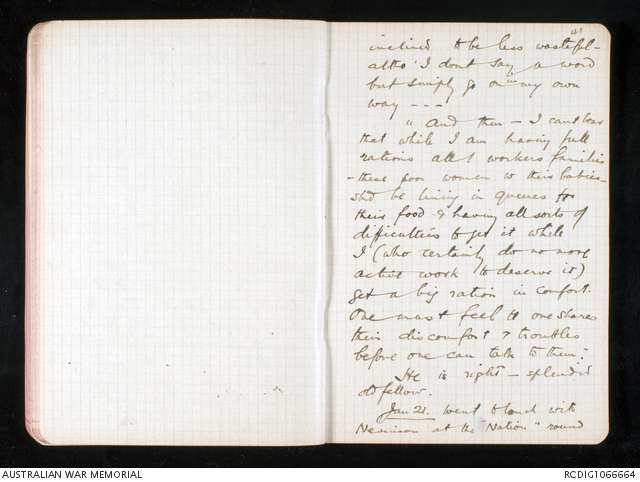 41
inclined to be less wasteful -
altho' I dont say a word
but simply go on in my own
way - - -
" And then - I cant bear
that while I am having full
rations all t workers families
- these poor women w their babies -
shd be living in queues for
their food & having all sorts of
difficulties to get it while
I (who certainly do no more
active work to deserve it)
get a big ration in comfort.
One must feel tt one shares
their discomfort & troubles
before one can talk to them".
He is right - splendid
old fellow.
Jan 21. Went to lunch with
Nevinson at the "Nation" round
AUSTRALIAN WAR MEMORIAL
RCDIG1066664